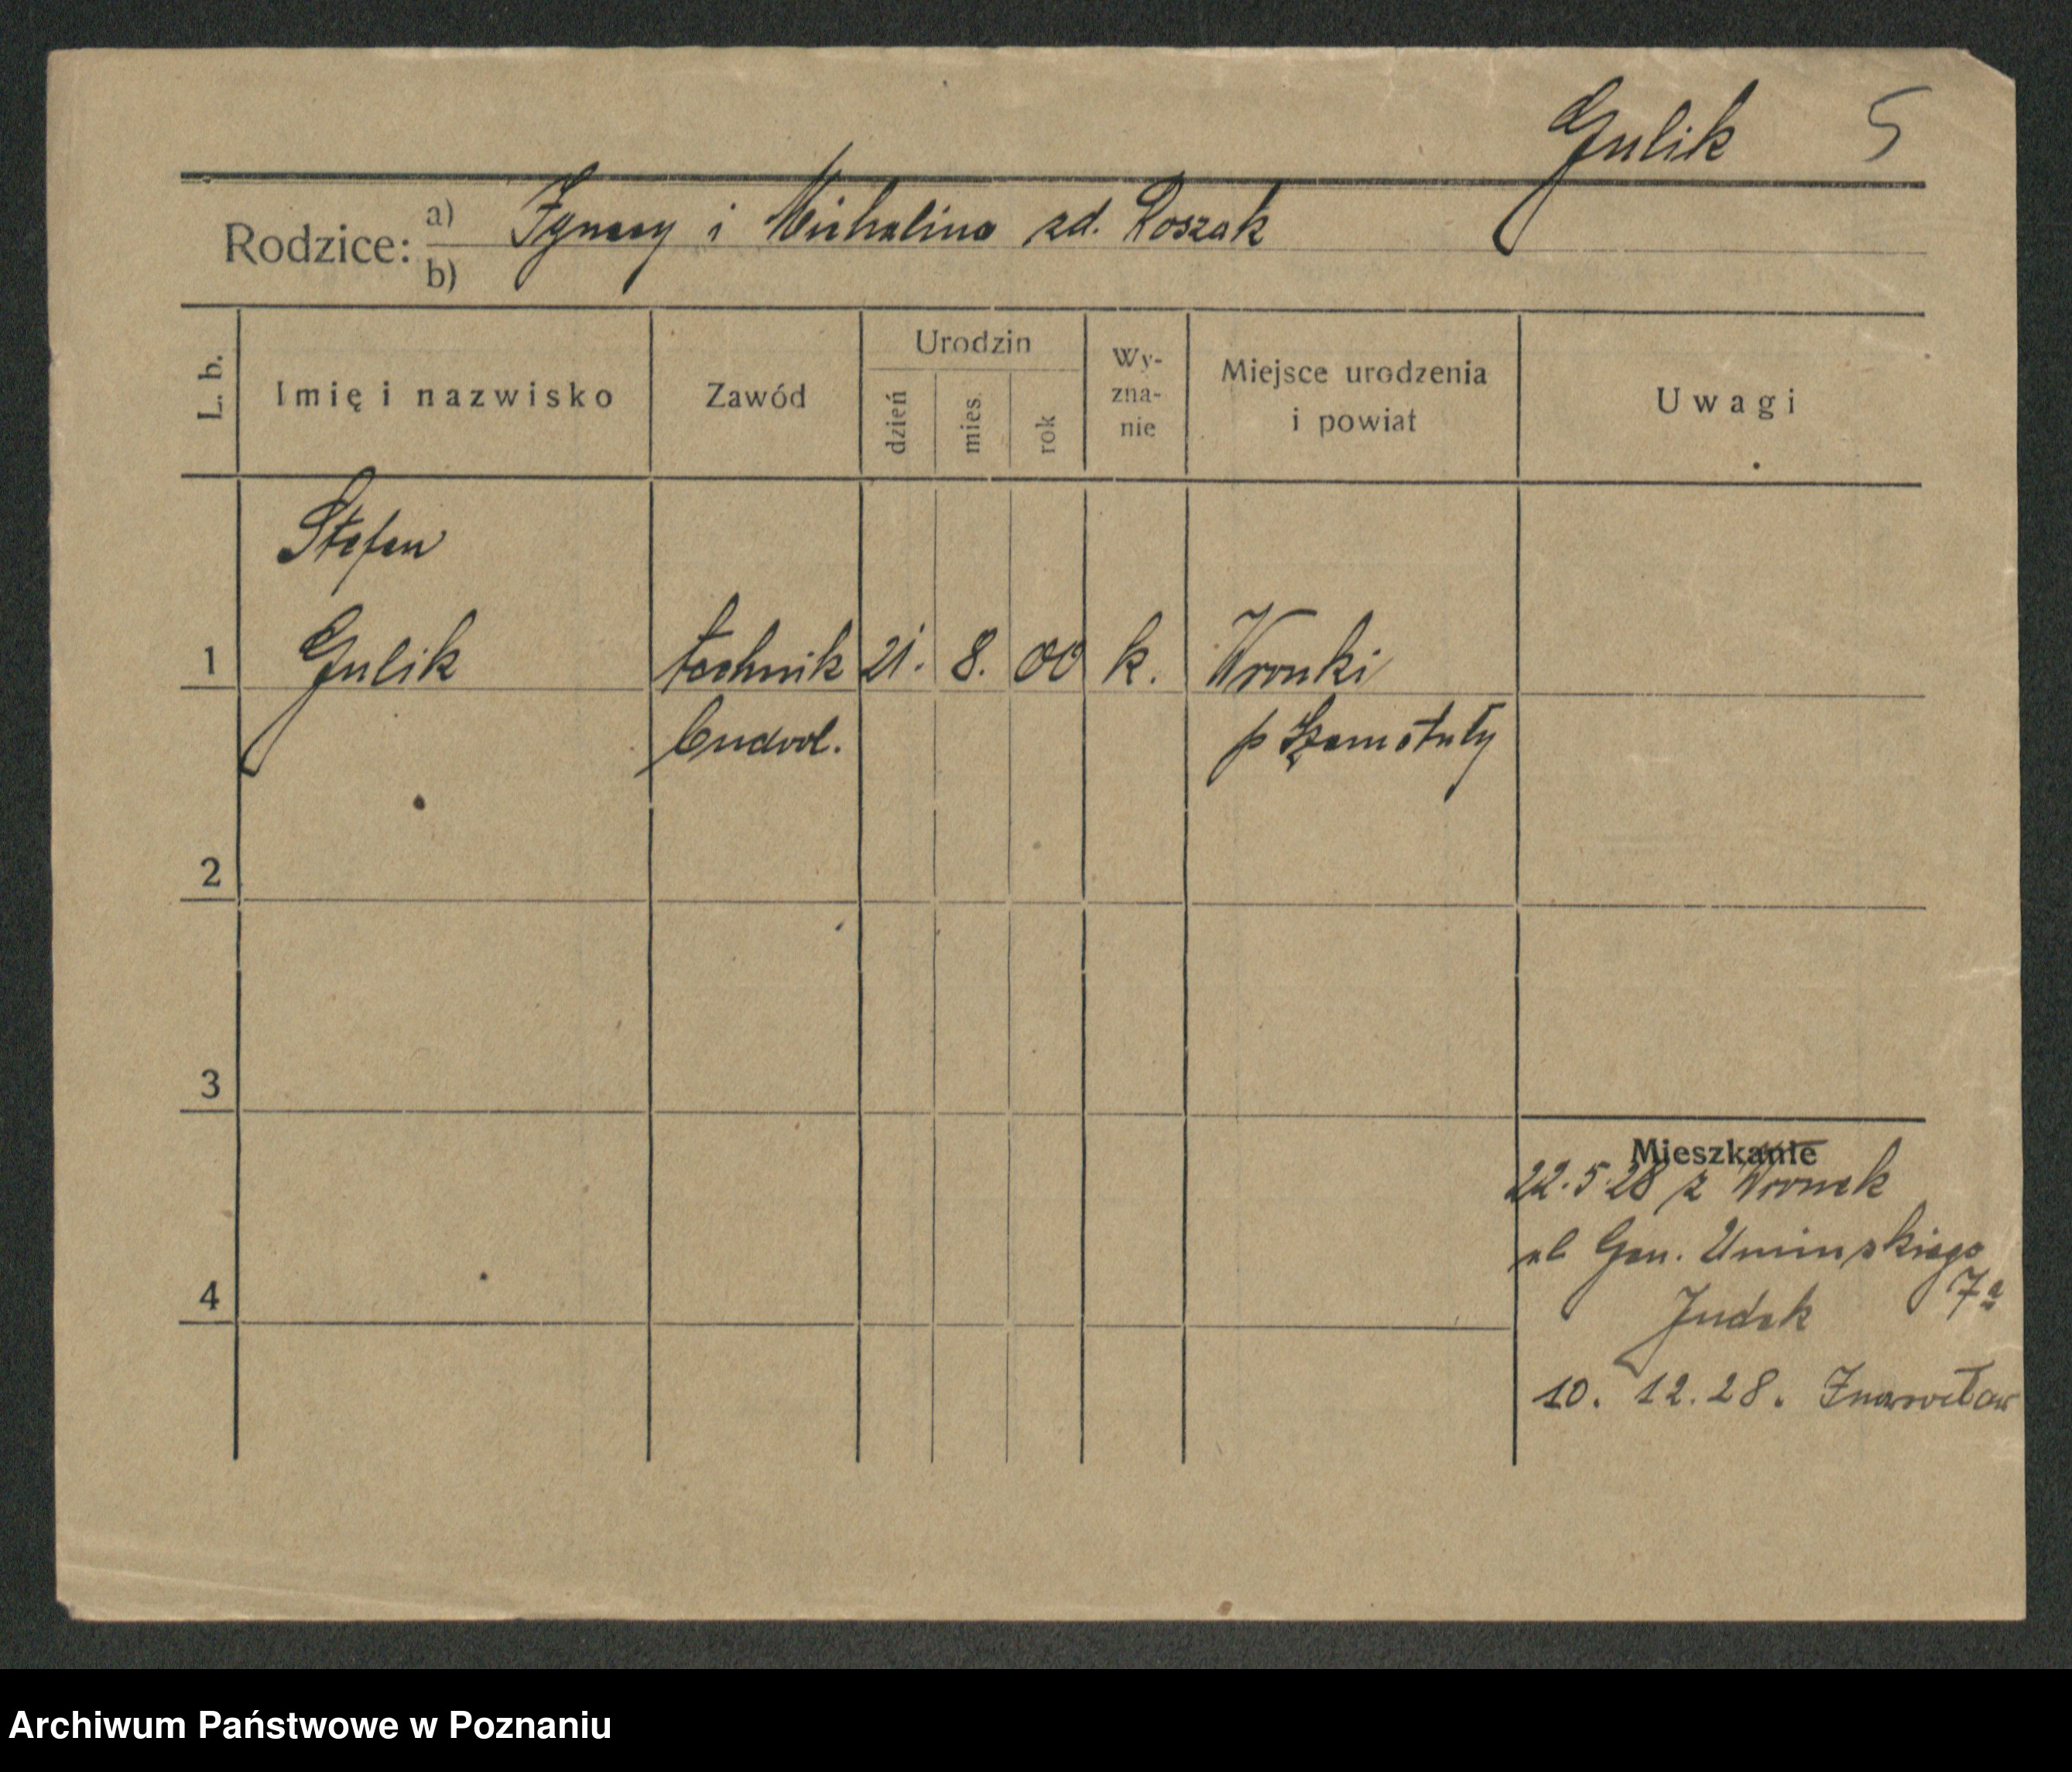 Gulik 5
Rodzice: a) Ignacy i Michalina zd. Roszak
b)
L. b. Imię i nazwisko Zawód Urodzin dzień mies. rok Wy-zna-nie Miejsce urodzenia i powiat Uwagi
Stefan
1 Gulik technik 21. 8. 00 k. Wronki
budowl. p Szamotuły
2
3
4
Mieszkanie
22.5.28 z Wronek
ul Gen. Umińskiego
7a
Judek
10. 12. 28. Inowrocław
Archiwum Państwowe w Poznaniu